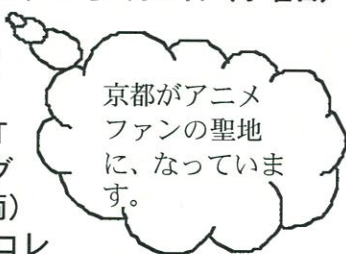 京都がアニメ
ファンの聖地
に、なっていま
す。
グ
コレ